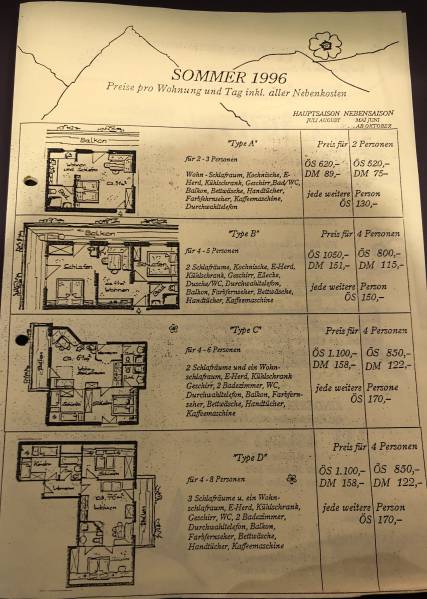 SOMMER 1996
Preise pro Wohnung und Tag inkl. aller Nebenkosten
HAUPTSAISON NEBENSAISON
JULI AUGUST MAI JUNI
AB OKTOBER
Balkon
"Type A"
für 2 - 3 Personen
Wohn - Schlafraum, Kochnische, E-
Herd, Kühlschrank, Geschirr, Bad/WC,
Balkon, Bettwäsche, Handtücher,
Farbfernseher, Kaffeemaschine,
Durchwahltelefon
Preis für 2 Personen
ÖS 620,- ÖS 520,-
DM 89,- DM 75,-
jede weitere Person
ÖS 130,-
Balkon
Schlafen
Wohnen
"Type B"
für 4 - 5 Personen
2 Schlafräume, Kochnische, E-Herd,
Kühlschrank, Geschirr, Eßecke,
Dusche/WC, Durchwahltelefon,
Balkon, Farbfernseher, Bettwäsche,
Handtücher, Kaffeemaschine
Preis für 4 Personen
ÖS 1050,- ÖS 800,-
DM 151,- DM 115,-
jede weitere Person
ÖS 150,-
"Type C"
für 4 - 6 Personen
2 Schlafräume und ein Wohn-
schlafraum, E-Herd, Kühlschrank
Geschirr, 2 Badezimmer, WC,
Durchwahltelefon, Balkon, Farbfern-
seher, Bettwäsche, Handtücher,
Kaffeemaschine
Preis für 4 Personen
ÖS 1.100,- ÖS 850,-
DM 158,- DM 122,-
jede weitere Persone
ÖS 170,-
Wohnen
"Type D"
für 4 - 8 Personen
3 Schlafräume u. ein Wohn-
schlafraum, E-Herd, Kühlschrank,
Geschirr, WC, 2 Badezimmer,
Durchwahltelefon, Balkon,
Farbfernseher, Bettwäsche,
Handtücher, Kaffeemaschine
Preis für 4 Personen
ÖS 1.100,- ÖS 850,-
DM 158,- DM 122,-
jede weitere Person
ÖS 170,-